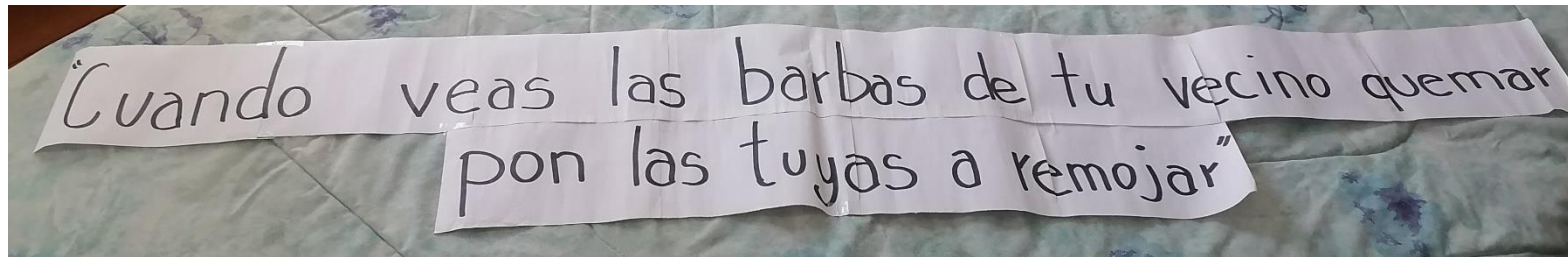 "Cuando veas las barbas de tu vecino quemar
pon las tuyas a remojar"